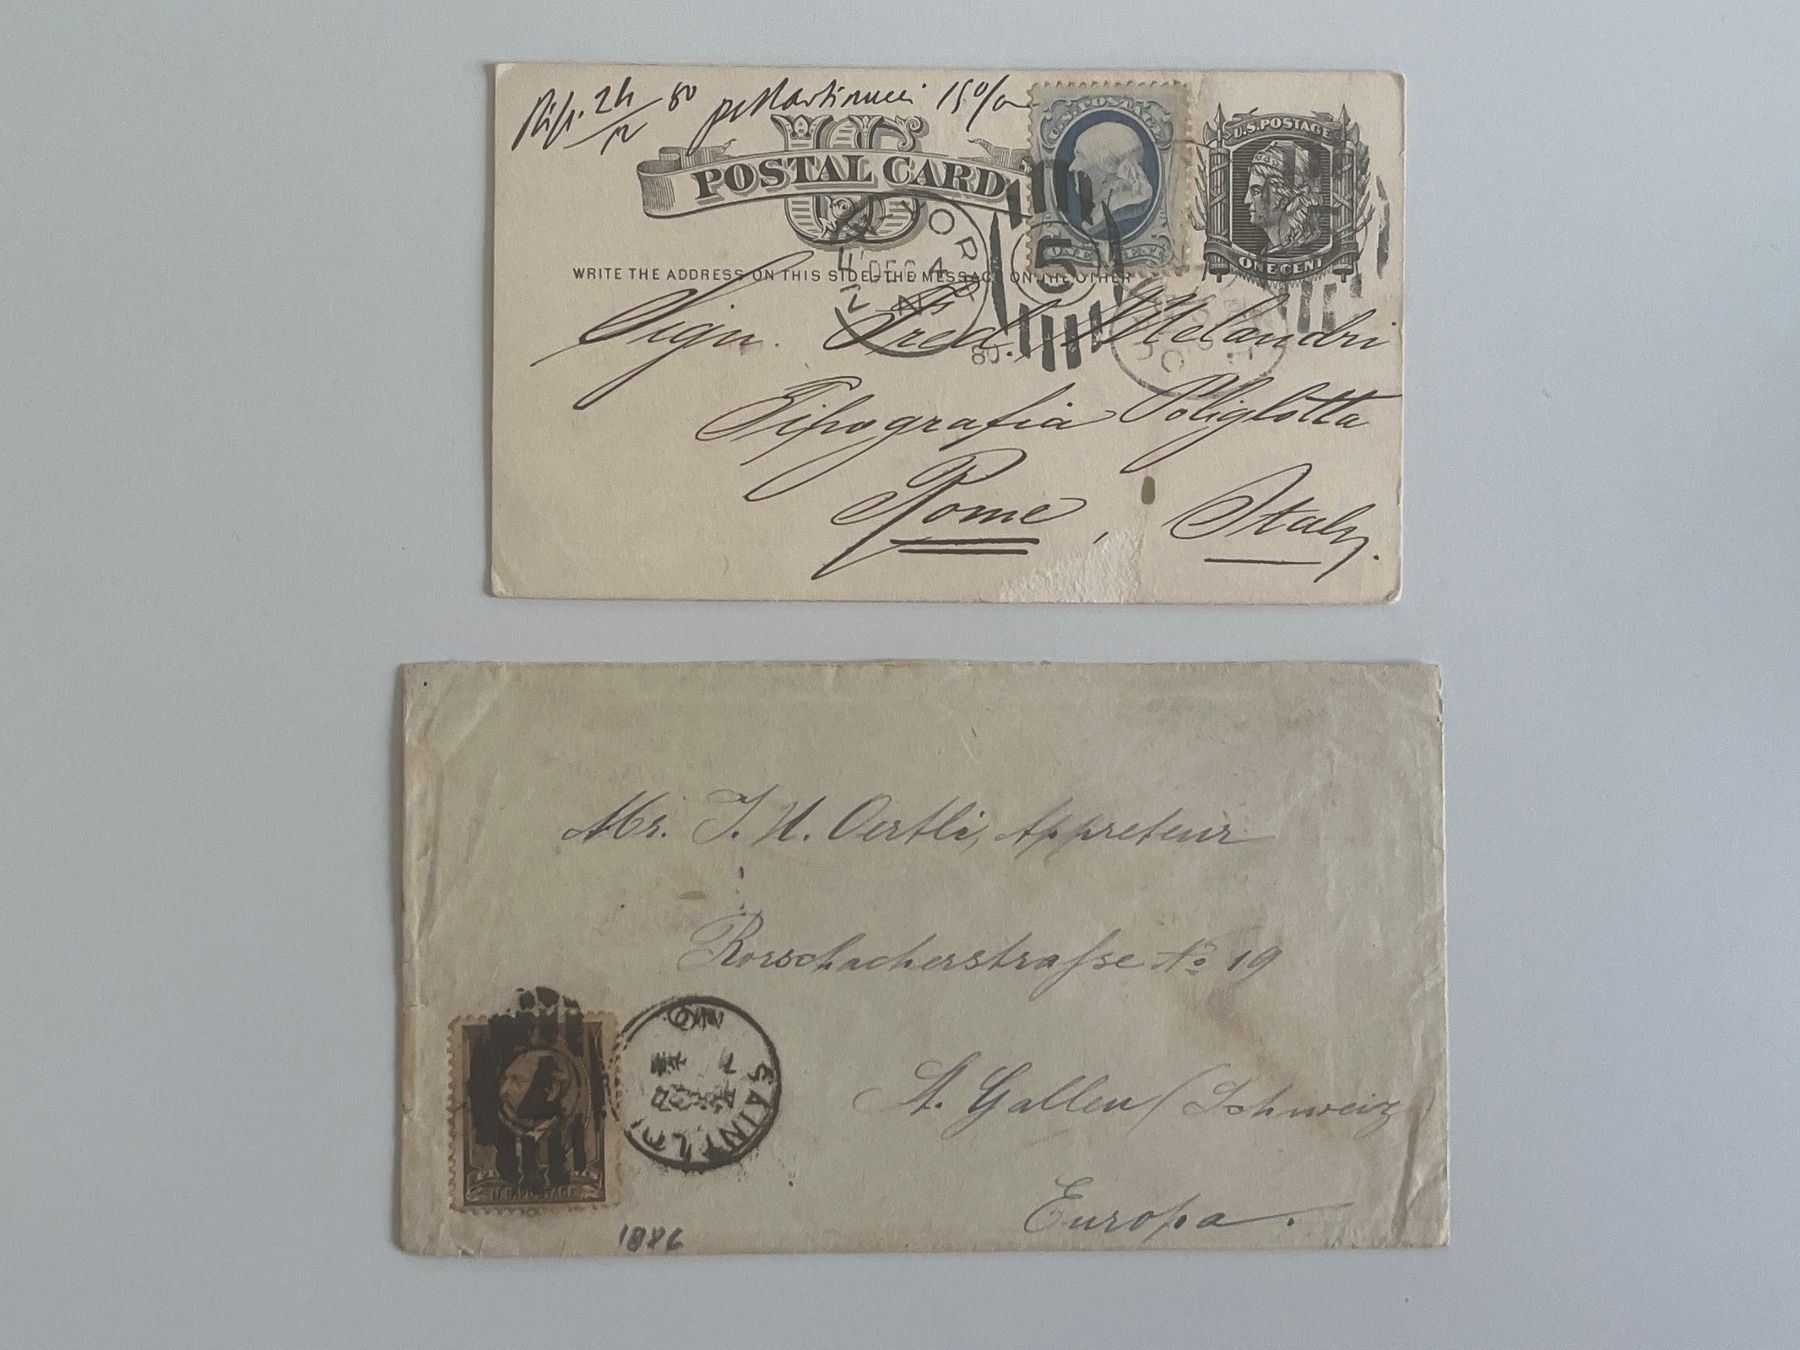 Risp. 24/12 80 per Martinucci 15 0/0
U.S. POSTAGE
U.S. POSTAGE
US
POSTAL CARD
5
ONE CENT
ONE CENT
WRITE THE ADDRESS ON THIS SIDE - THE MESSAGE ON THE OTHER
YORK
DEC 4
80
Sign. Fred. Melandri
Tipografia Poliglotta
Rome, Italy.
Mr. J. U. Oertli, Appreteur
Rorschacherstrasse No 19
St. Gallen (Schweiz)
Europa.
SAINT LOUIS
MO
7 AM
U.S. POSTAGE
1886